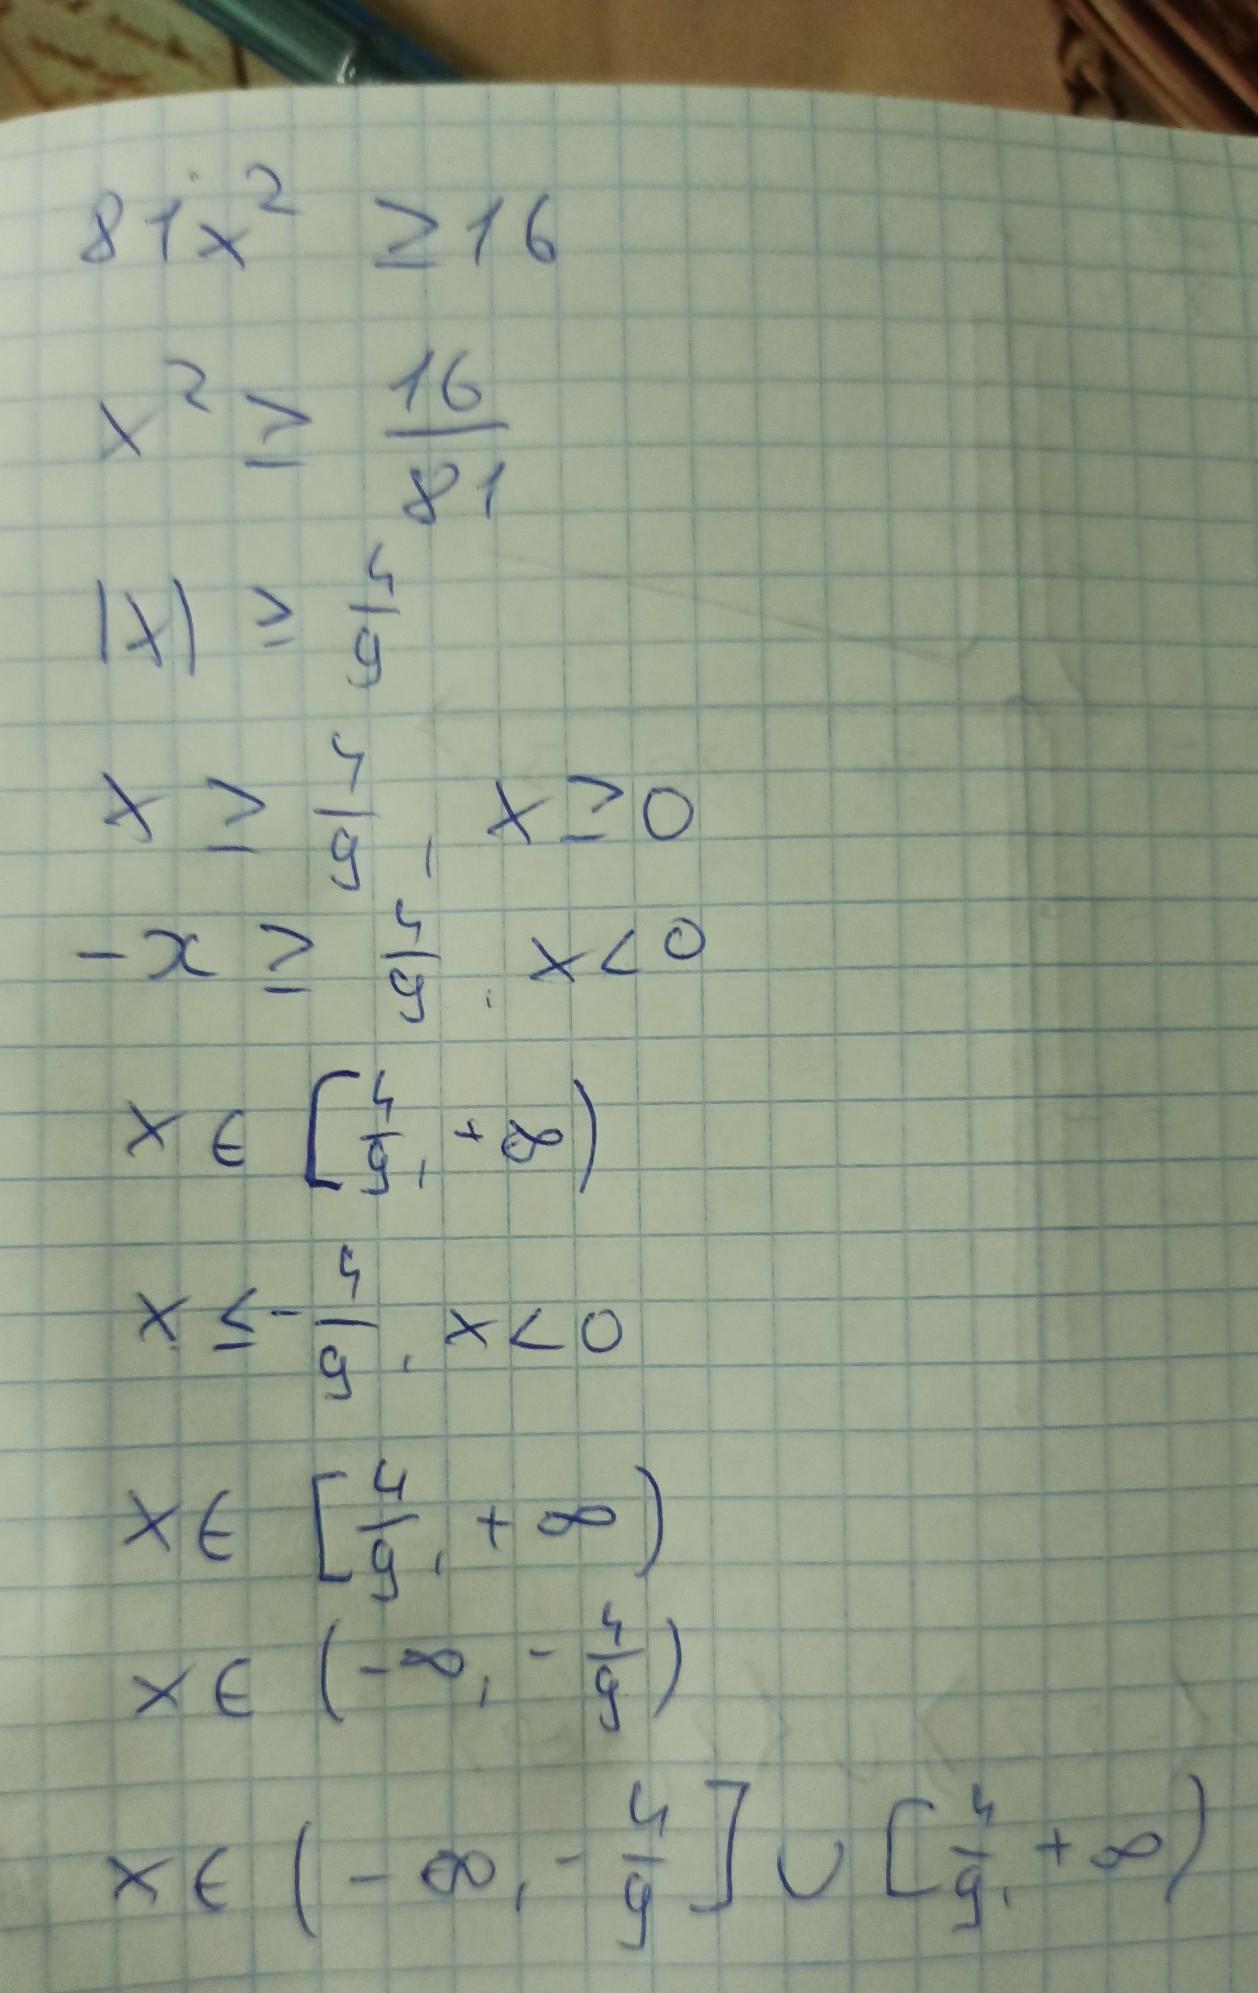 81x² ≥ 16
x² ≥ 16/81
|x| ≥ 4/9
x ≥ 4/9, x ≥ 0
-x ≥ 4/9, x < 0
x ∈ [4/9, +∞)
x ≤ -4/9, x < 0
x ∈ [4/9, +∞)
x ∈ (-∞, -4/9)
x ∈ (-∞, -4/9] ∪ [4/9, +∞)